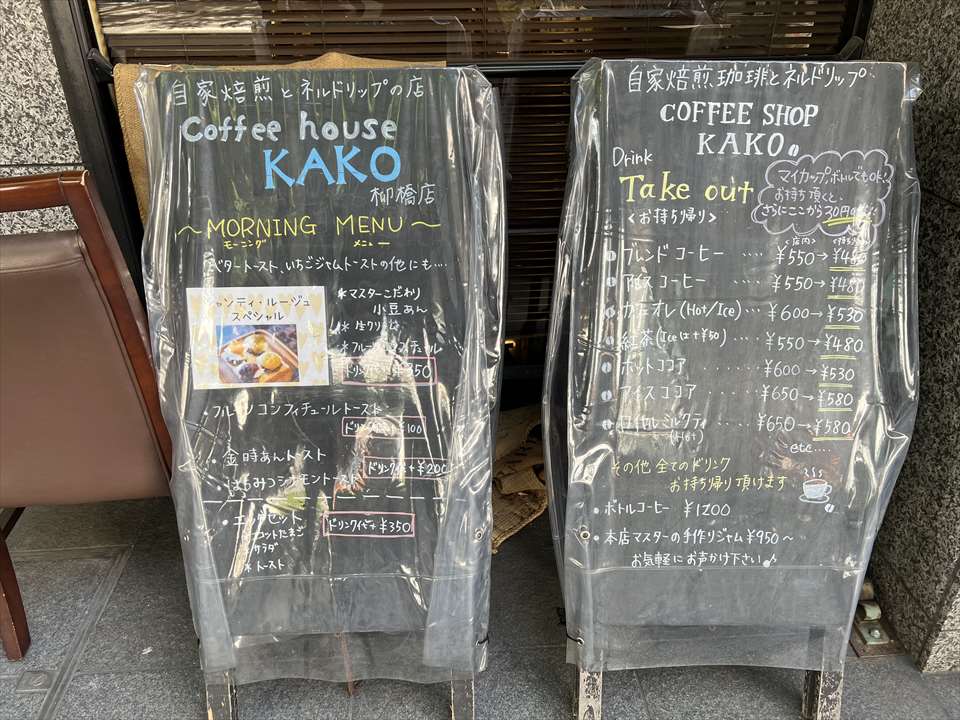 自家焙煎とネルドリップの店
Coffee house
KAKO
柳橋店
～MORNING MENU～
モーニング メニュー
バタートースト、いちごジャムトーストの他にも....
シャンティ・ルージュ
スペシャル
*マスターこだわり
小豆あん
*生クリーム
*フルーツコンフィチュール
ドリンク代+¥350
・フルーツコンフィチュールトースト
ドリンク代+¥100
・金時あんトースト
ドリンク代+¥200
・はちみつシナモントースト
セット
ドリンク代+¥350
サラダ
*トースト
自家焙煎珈琲とネルドリップ
COFFEE SHOP
KAKO
Drink
Take out
<お持ち帰り>
マイカップボトルでもOK!
お持ち頂くと
さらにここから30円
<店内>
ブレンドコーヒー ････ ¥550→
アイスコーヒー ････ ¥550→¥480
カフェオレ(Hot/Ice)･･･ ¥600→¥530
紅茶(Iceは+¥50) ･･･ ¥550→¥480
ホットココア ････ ¥600→¥530
アイスココア ････ ¥650→¥580
ロイヤルミルクティ ･･･ ¥650→¥580
(Hot)
etc....
その他全てのドリンク
お持ち帰り頂けます
・ボトルコーヒー ¥1200
・本店マスターの手作りジャム¥950～
お気軽にお声かけ下さい♪